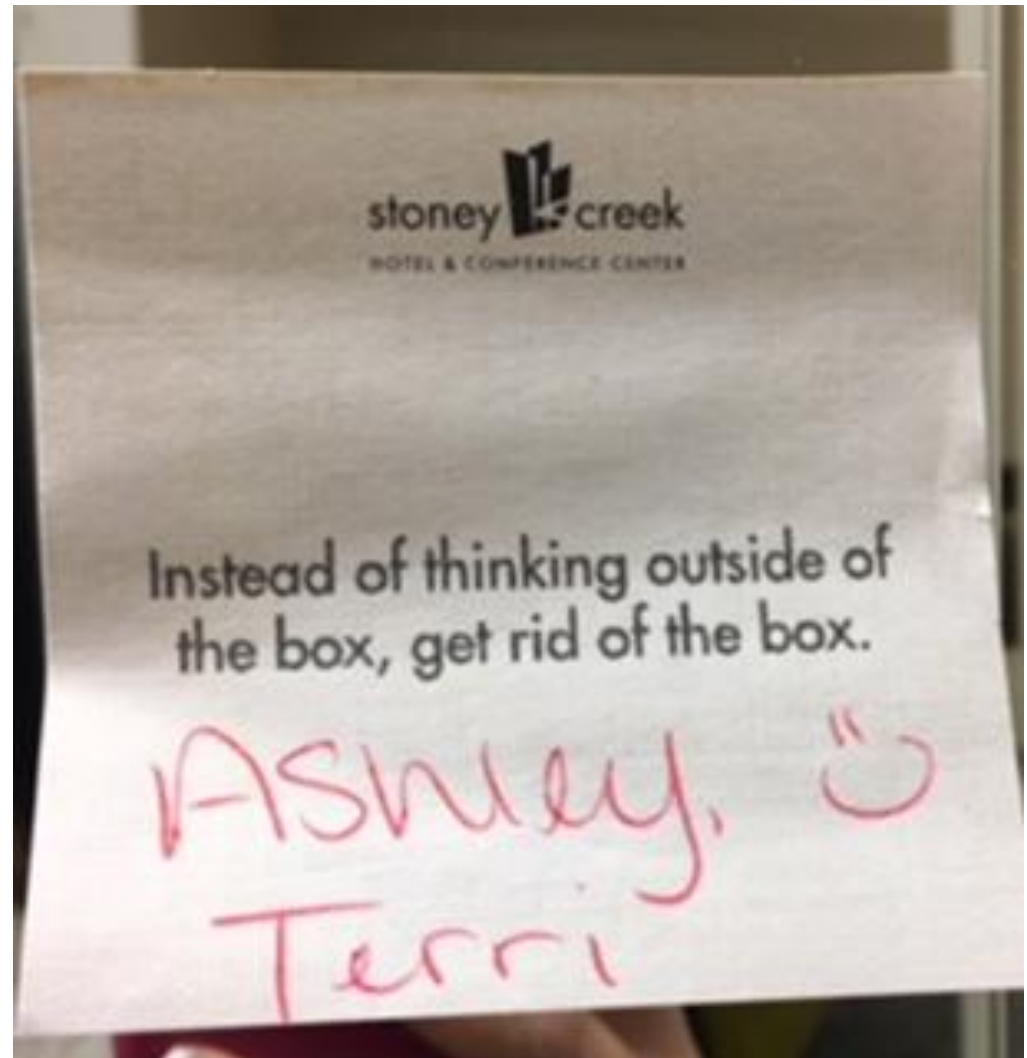 stoney creek
HOTEL & CONFERENCE CENTER
Instead of thinking outside of
the box, get rid of the box.
Ashley,
Terri